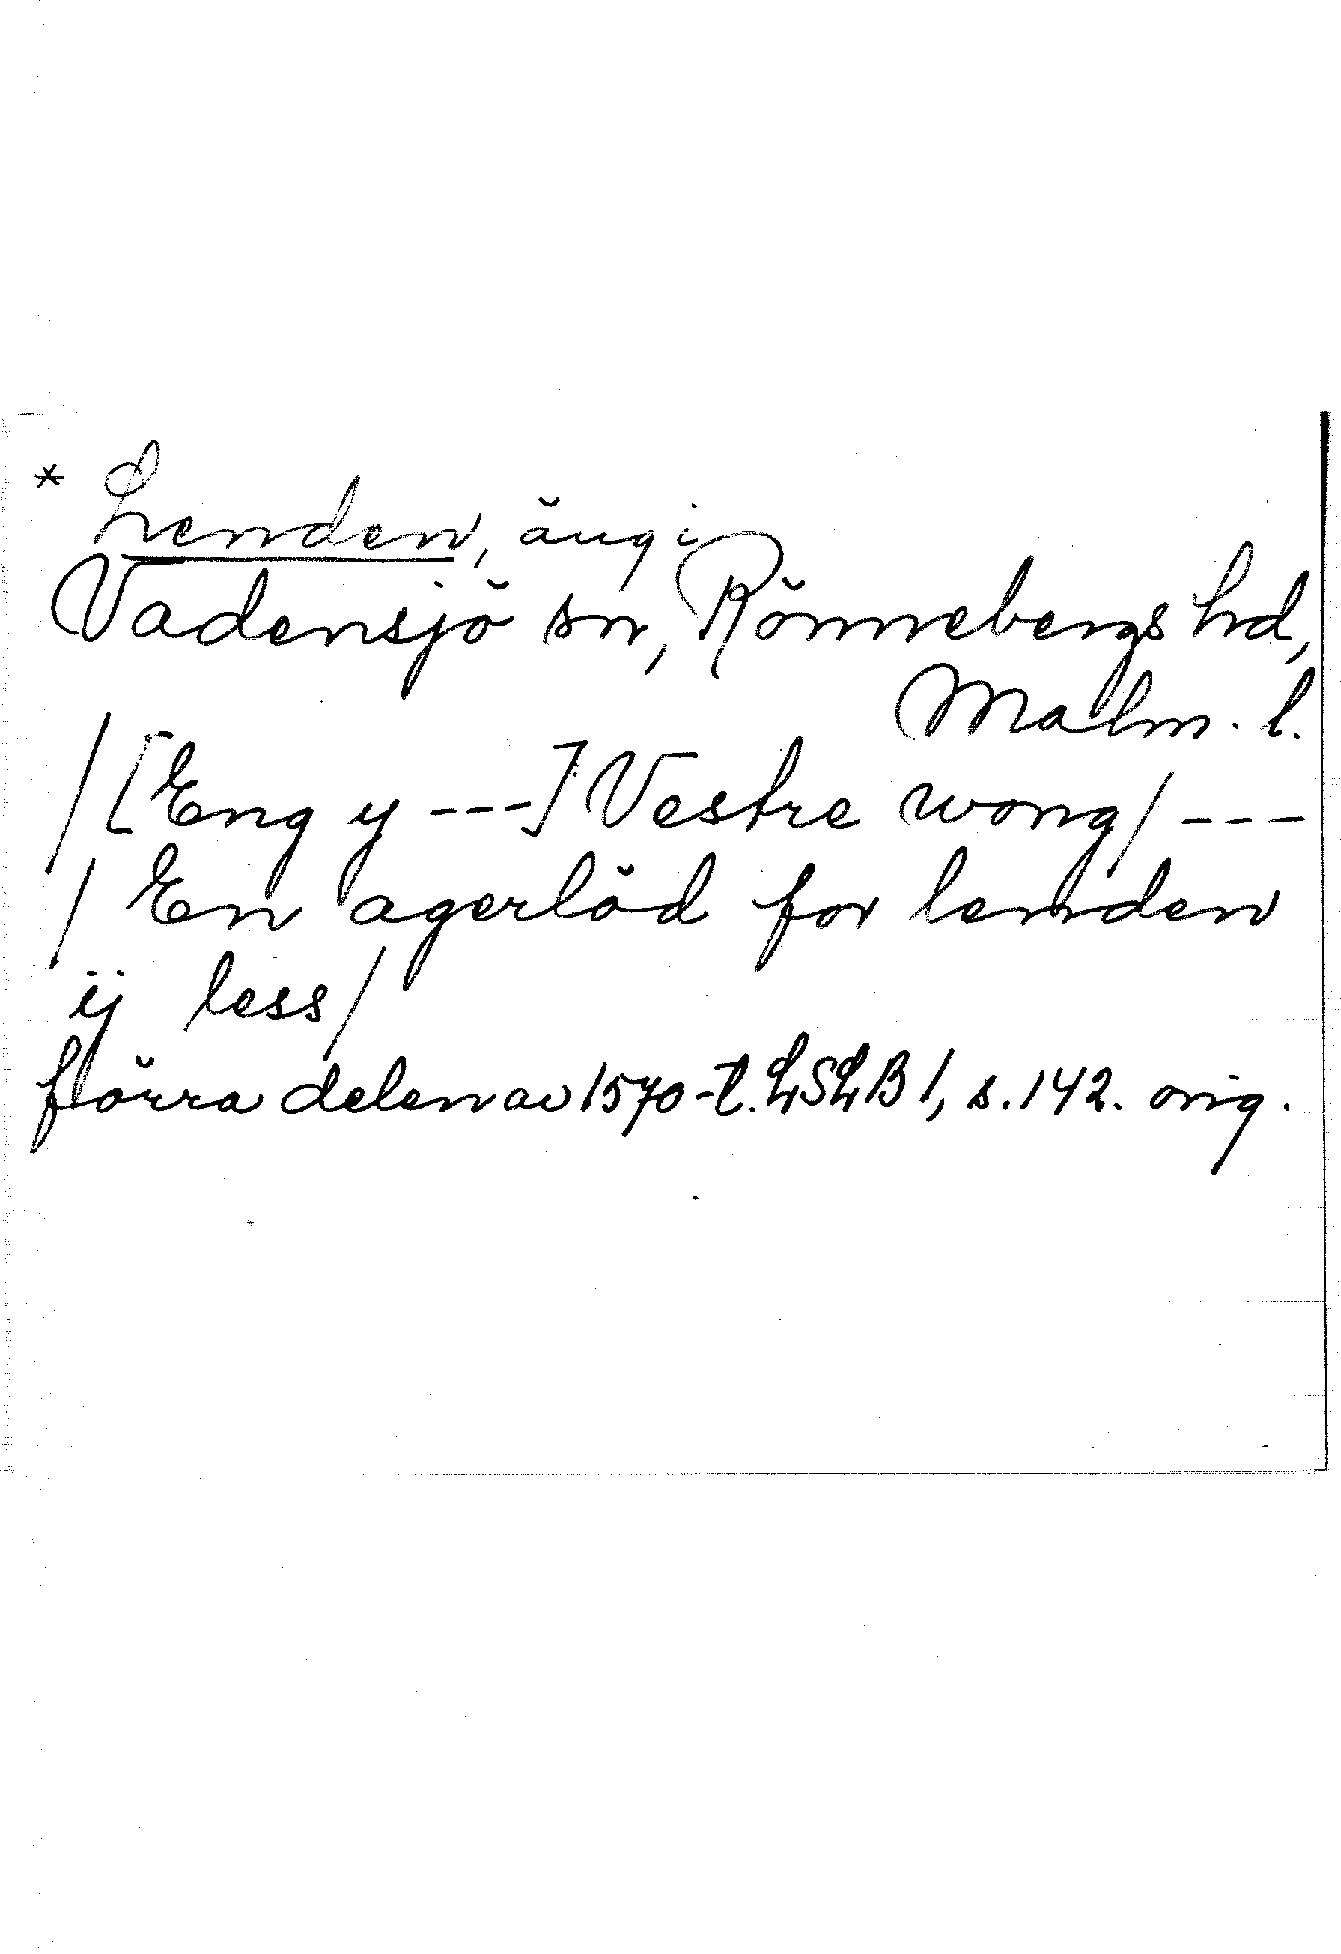 * Lenden, äng i
Vadensjö sn, Rönnebergs hd,
Malm. l.
/[Eng y ---] Vestre wong/ ---
/ En agerlöd for lenden
ij less/
förra delen av 1570-t. LSLB 1, s. 142. orig.